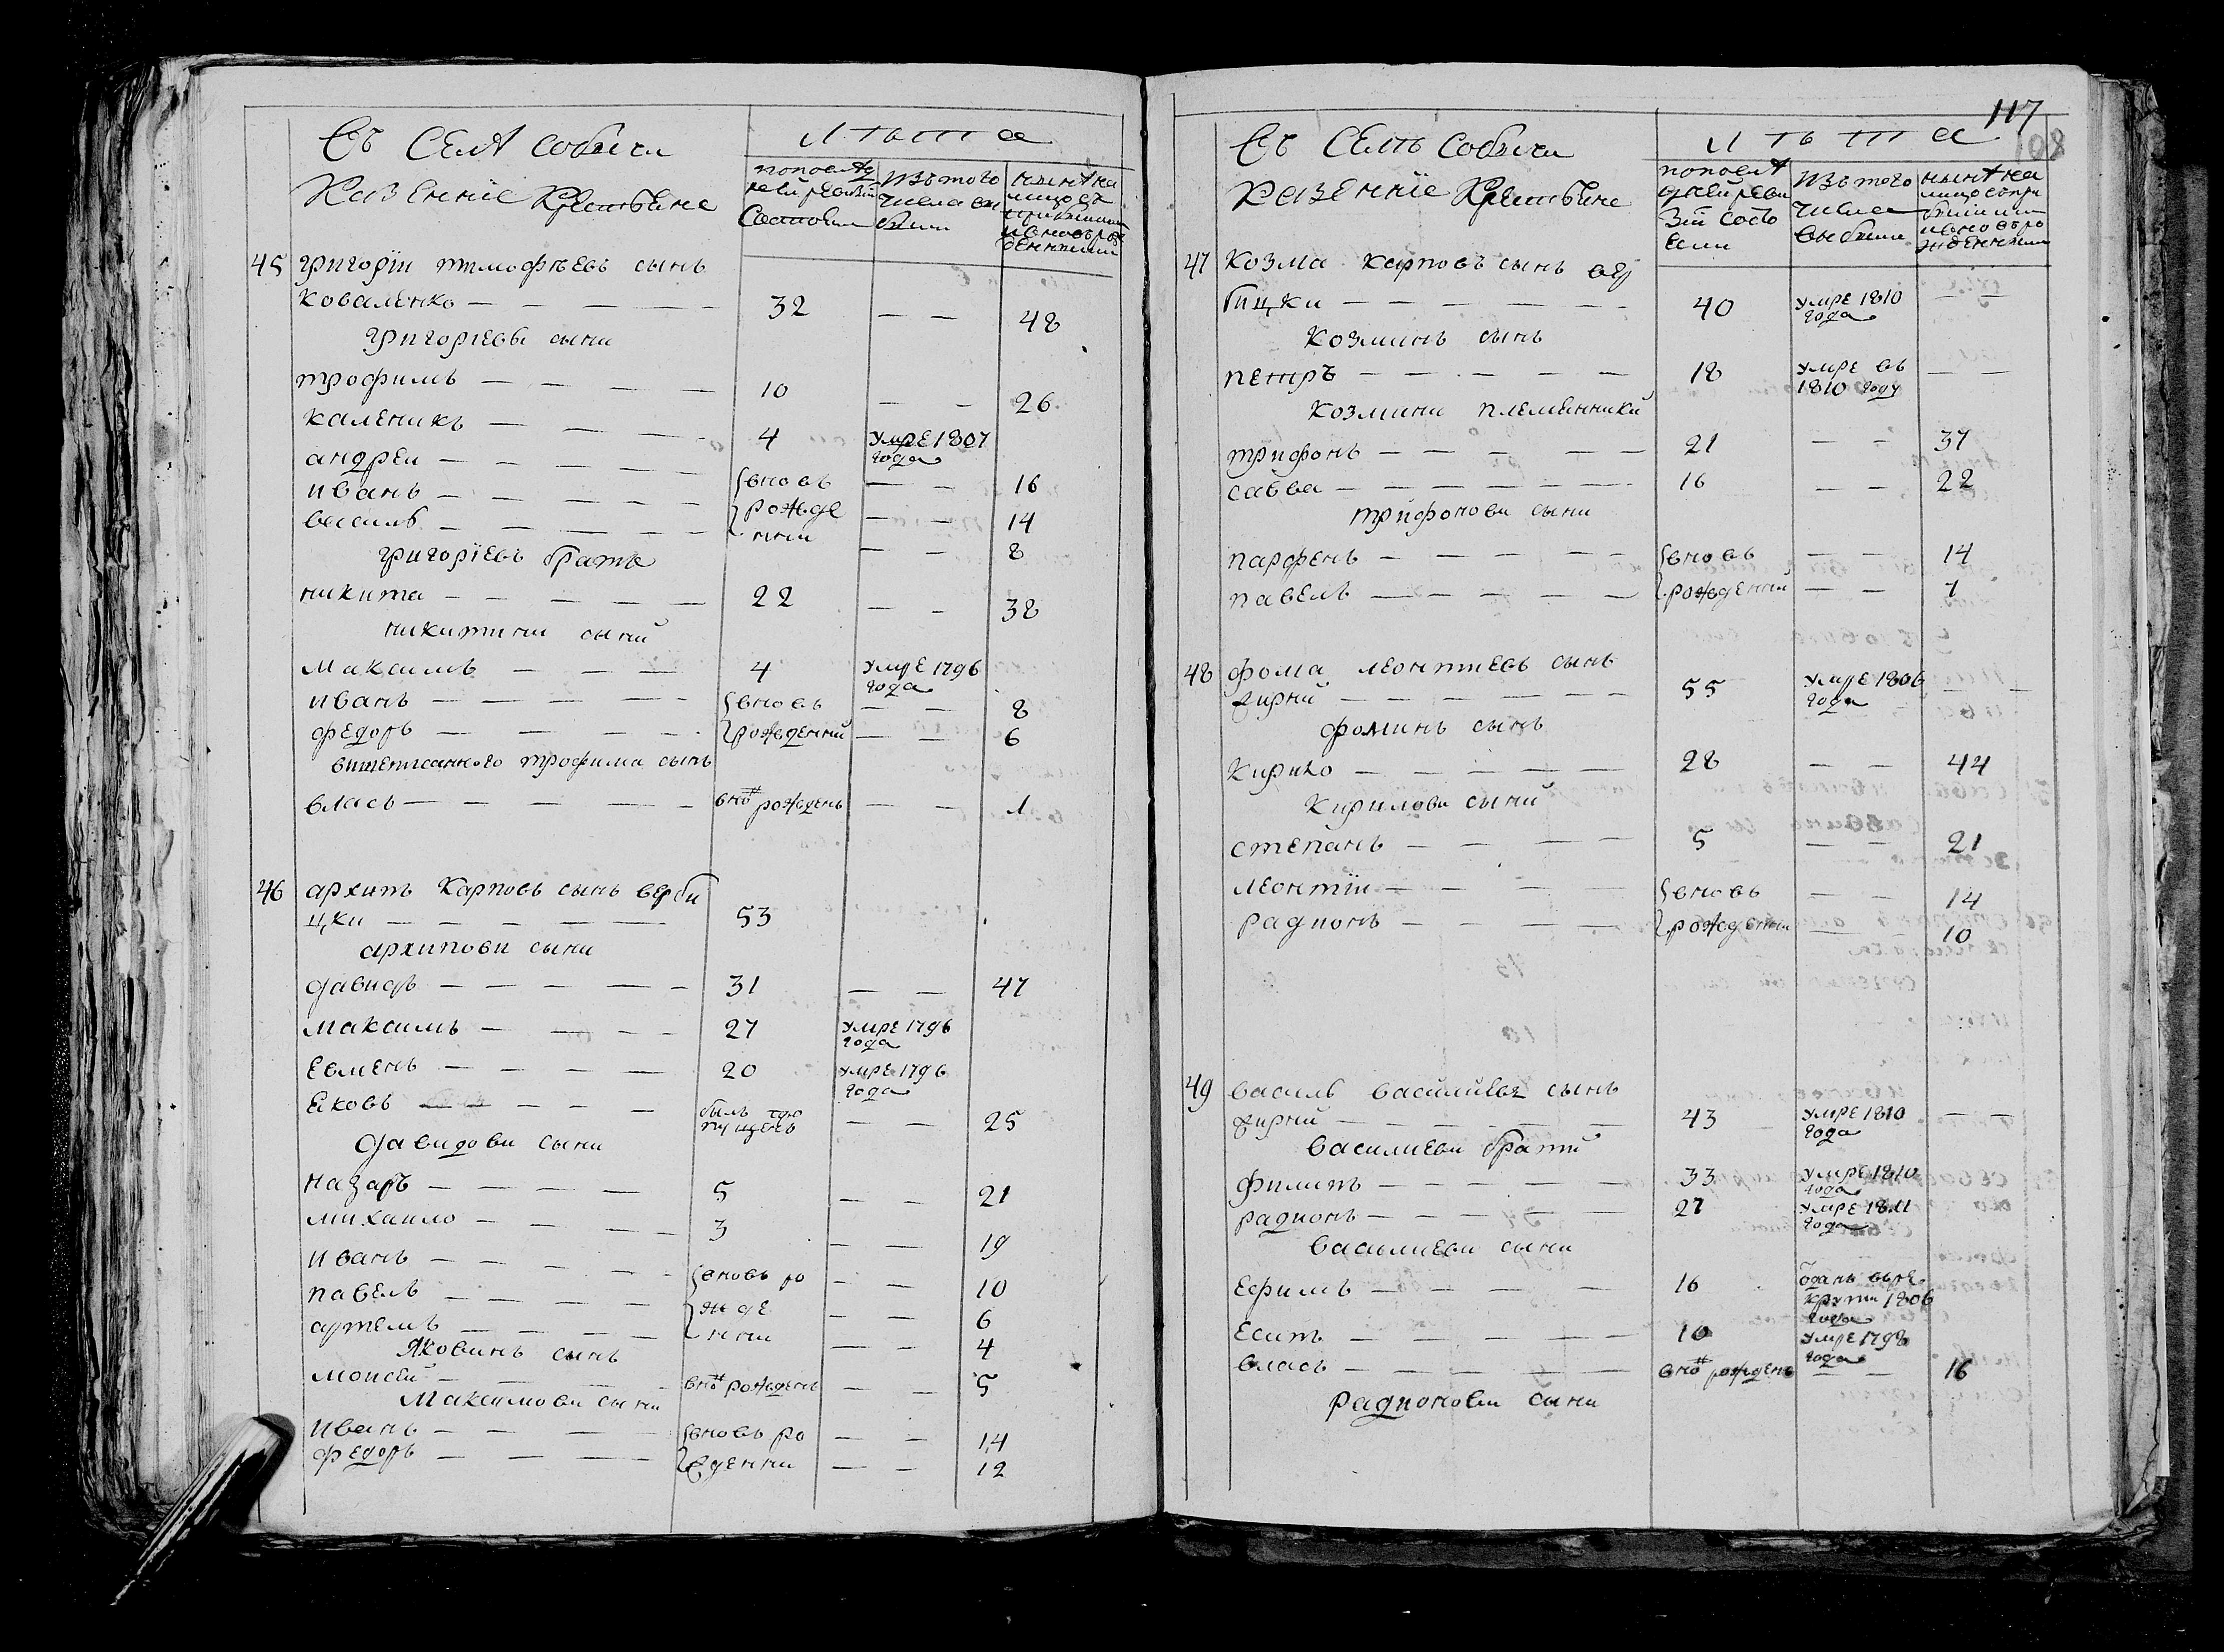 Въ Селѣ Собичи
Казенніе Крестьяне
Лѣта
по последней ревизіи Состояли
Изъ того числа выбыли
ныне на лицо съ прибылими и вновь рожденними
45 григоріи тимофѣевъ сынъ
коваленко — — — — 32 — — 48
григориеви сыни
трофимъ — — — — 10 — — 26
каленикъ — — — 4 умре 1807 года
андреи — — — — вновь — — 16
иванъ — — — — рожде — — 14
василь — — — — нни — — 8
григоріевъ братъ
никита — — — — — 22 — — 38
никитини сыни
максимъ — — — 4 умре 1796 года
иванъ — — — — вновь — — 8
федоръ — — — — рожденний — — 6
вишеписанного трофима сынъ
власъ — — — — — вно рожденъ — — 1
46 архипъ Карповъ сынъ верби
цки — — — — — 53
архипови сыни
давидъ — — — — — 31 — — 47
максимъ — — — — 27 умре 1796 года
Евменъ — — — — 20 умре 1796 года
Ековъ — — — — былъ пропущенъ — — 25
давидови сыни
назаръ — — — — 5 — — 21
михаило — — — — 3 — — 19
иванъ — — — — вновь ро — — 10
павелъ — — — — жде — — 6
артемъ — — — — нни — — 4
Яковинъ сынъ
моисей — — — вно рожденъ — — 5
Максимови сыни
иванъ — — — вновь ро — — 14
федоръ — — — — жденни — — 12
117
108
Въ Селѣ Собичи
Казенніе Крестьяне
Лѣта
по последней ревизіи состояли
Изъ того числа выбыли
ныне на лицо съ прибылими и вновь рожденними
47 Козма карповъ сынъ вер
бицки — — — — — — 40 умре 1810 года — —
козминъ сынъ
петръ — — — — — — 18 умре въ 1810 году — —
козмини племянники
трифонъ — — — — — 21 — — 37
савва — — — — — — 16 — — 22
трифонови сыни
парфенъ — — — — — вновь — — 14
павелъ — — — — — рожденний — — 7
48 фома леонтиевъ сынъ
— — — — — — 55 умре 1806 года — —
фоминъ сынъ
Кирило — — — — — 28 — — 44
Кирилови сыни
степанъ — — — — 5 — — 21
леонтіи — — — — вновь — — 14
радионъ — — — — рожденни — — 10
49 василь василиевъ сынъ
— — — — — — 43 умре 1810 года — —
василиеви братти
филипъ — — — — — 33 умре 1810 года
радионъ — — — — — 27 умре 1811 года
василиеви сыни
Ефимъ — — — — — 16 отданъ въ рекрути 1806 года
Есипъ — — — — — 10 умре 1798 года
власъ — — — — — вно рожденъ — — 16
радионови сыни